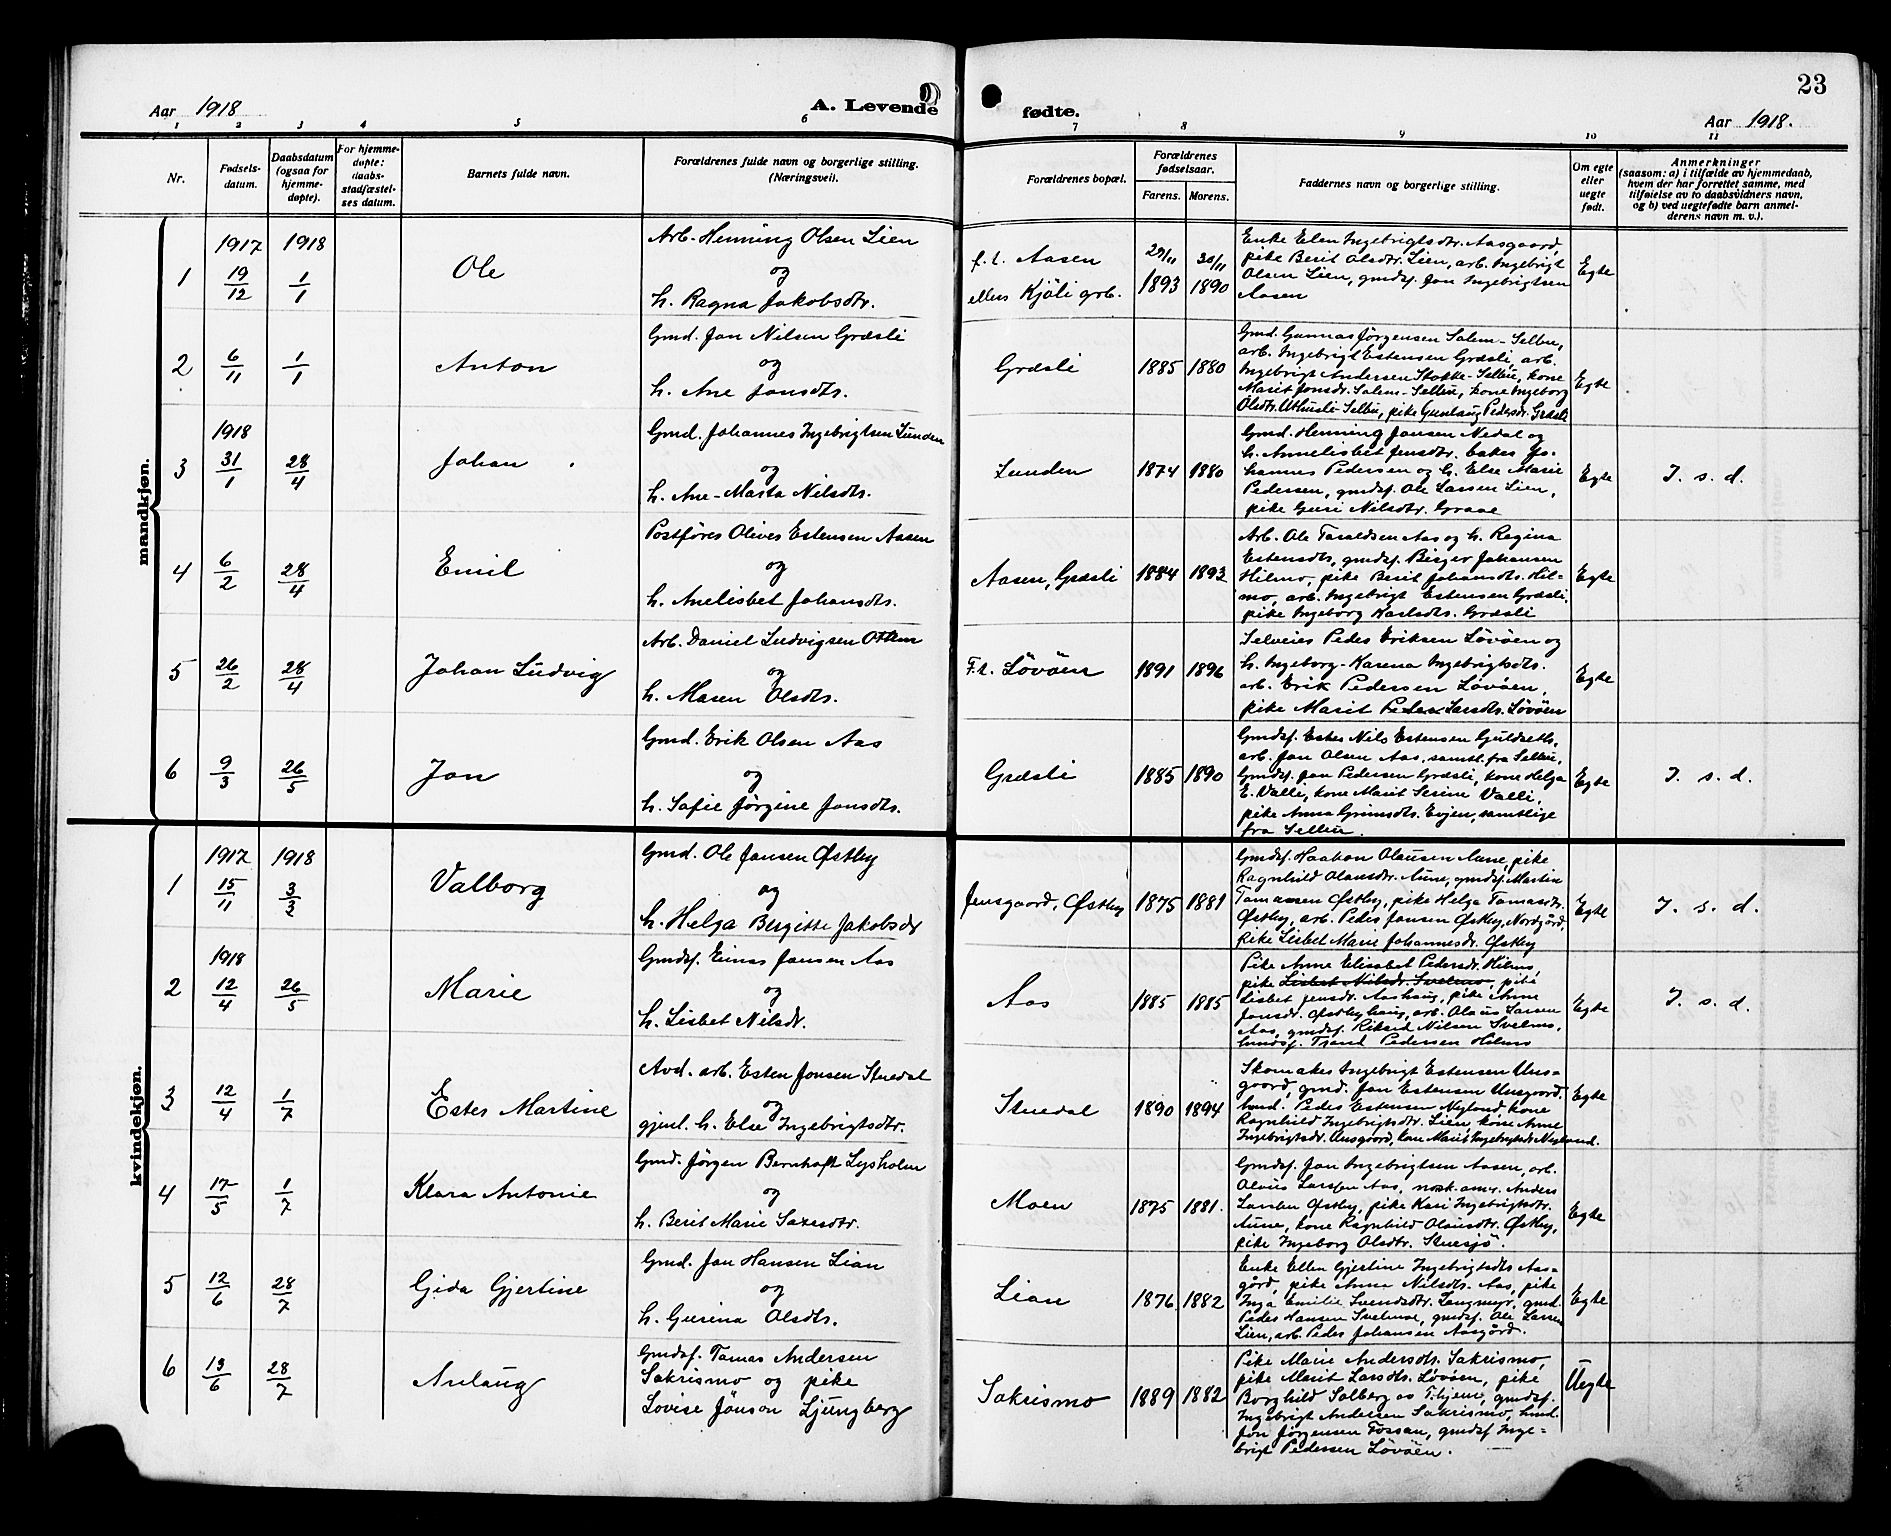 23
Aar 1918
A. Levende
fødte.
Aar 1918.
1 2 3 4 5 6 7 8 9 10 11
Nr.
Fødsels-
datum.
Daabsdatum
(ogsaa for
hjemme-
døpte).
For hjemme-
døpte:
daabs-
stadfæstel-
ses datum.
Barnets fulde navn.
Forældrenes fulde navn og borgerlige stilling.
(Næringsvei).
Forældrenes bopæl.
Forældrenes
fødselsaar.
Farens. Morens.
Faddernes navn og borgerlige stilling.
Om egte
eller
uegte
født.
Anmerkninger
(saasom: a) i tilfælde av hjemmedaab,
hvem der har forrettet samme, med
tilføielse av to daabsvidners navn,
og b) ved uegtefødte barn anmel-
derens navn m. v.).
mandkjøn.
1917 1918
1 19/12 1/1
Ole
Arb. Henning Olsen Lien
og
h. Ragna Jakobsdtr.
f. t. Aasen
ellers Kjöli grb.
1893 30/11 1890
Enke Elen Ingebrigtsdtr. Aasgaard,
pike Berit Olsdtr. Lien, arb. Ingebrigt
Olsen Lien, gmdsf. Jon Ingebrigtsen
Aasen
Egte
2 6/11 1/1
Anton
Gmd. Jon Nilsen Græsli
og
h. Ane Jonsdtr.
Græsli
1885 1880
Gmd. Gunnar Jörgensen Salem-Selbu,
arb. Ingebrigt Estensen Græsli, arb.
Ingebrigt Andersen Stokke-Selbu, kone
Marit Jonsdr. Salem-Selbu, kone Ingeborg
Olsdtr. Uthusli-Selbu, pike Gunlaug Pedersdr. Græsli
Egte
1918
3 31/1 28/4
Johan
Gmd. Johannes Ingebrigtsen Lunden
og
h. Ane-Marta Nilsdtr.
Lunden
1874 1880
Gmd. Henning Jonsen Nedal og
h. Annelisbet Jensdtr. baker Jo-
hannes Pedersen og h. Else Marie
Pedersen, gmdsf. Ole Larsen Lien,
pike Guri Nilsdtr. Graae
Egte
I. s. d.
4 6/2 28/4
Emil
Postförer Oliver Estensen Aasen
og
h. Anelisbet Johansdtr.
Aasen, Græsli
1884 1893
Arb. Ole Taraldsen Aas og h. Regina
Estensdtr, gmdsf. Birger Johansen
Hilmo, pike Berit Johansdtr. Hil-
mo, arb. Ingebrigt Estensen Græsli,
pike Ingeborg Karlsdtr. Græsli
Egte
5 26/2 28/4
Johan Ludvig
Arb. Daniel Ludvigsen Ottem
og
h. Maren Olsdtr.
F.t. Lövöen
1891 1896
Selveier Peder Eriksen Lövöen og
h. Ingeborg-Karena Ingebrigtsdtr.
arb. Erik Pedersen Lövöen,
pike Marit Larsdtr. Lövöen
Egte
6 9/3 26/5
Jon
Gmd. Erik Olsen Aas
og
h. Sofie Jörgine Jonsdtr.
Græsli
1885 1890
Gmdsf. Ester Nils Estensen Guldseth,
arb. Jon Olsen Aas, samtl. fra Selbu,
Gmdsf. Jon Pedersen Græsli, kone Helga
E. Valli, kone Marit Serine Valli,
pike Anna Grimsdtr. Evjen, samtlige
fra Selbu.
Egte
I. s. d.
kvindekjøn.
1917 1918
1 15/11 3/2
Valborg
Gmd. Ole Jonsen Østby
og
h. Helga Bergitte Jakobsdr
Jensgaard, Østby
1875 1881
Gmdsf. Haakon Olausen Aune, pike
Ragnhild Olausdtr. Aune, gmdsf. Martin
Tomassen Østby, pike Helga Tomasdtr.
Østby, arb. Peder Jonsen Østby, Nordgård,
Pike Lisbet Marie Johannesdr. Østby
Egte
I. s. d.
1918
2 12/4 26/5
Marie
Gmdsf. Einar Jonsen Aas
og
h. Lisbet Nilsdr.
Aas
1885 1885
Pike Anne Elisabet Pedersdr. Hilmo,
pike Lisbet Nilsdr. Svelmo, pike
Lisbet Jensdr. Aashaug, pike Anne
Jonsdr. Østbyhaug, arb. Olaus Larsen
Aas, gmdsf. Rikard Nilsen Svelmo,
Trond Pedersen Hilmo
Egte
I. s. d.
3 12/4 1/7
Ester Martine
Avd. arb. Esten Jonsen Stuedal
og
gjenl. h. Else Ingebrigtsdtr.
Stuedal
1890 1894
Skomaker Ingebrigt Estensen Uns-
gaard, gmd. Jon Estensen Unsgaard,
hmd. Peder Estensen Nyland, kone
Ragnhild Ingebrigtsdtr. Lien, kone Anne
Ingebrigtsdr. Unsgaard, kone Marit Ingebrigtsdr. Nyland.
Egte
4 17/5 1/7
Klara Antonie
Gmd. Jörgen Bernhoft Lysholm
og
h. Berit Marie Larsdtr.
Moen
1875 1881.
Gmdsf. Jon Ingebrigtsen Aasen, arb.
Olaus Larsen Aas, norsk-amr. Anders
Larsen Østby, pike Kari Ingebrigtsdtr.
Aune, kone Ragnhild Olausdtr. Østby,
pike Ingeborg Olsdtr. Stuesjö.
Egte
5 12/6 28/7
Gida Gjertine
Gmd. Jon Hansen Lian
og
h. Gurina Olsdtr.
Lian
1876 1882
Enke Ellen Gjertine Ingebrigtsdtr Aas-
gård, pike Anna Nilsdtr. Aas, pike
Inga Emilie Svendsdtr. Langmyr, gmd.
Peder Hansen Svelmoe, gmdsf. Ole Larsen
Lien, arb. Peder Johansen Aasgård.
Egte
6 13/6 28/7
Anlaug
Gmdsf. Tomas Andersen
Sakrismo og pike
Lovise Jönson Ljungberg
Sakrismo
1889 1882
Pike Marie Andersdtr. Sakrismo,
pike Marit Larsdtr. Lövöen, pike
Borghild Solberg av Trhjem, gmdsf.
Ingebrigt Andersen Sakrismo, hmd.
Jon Jörgensen Fossan, gmdsf Inge-
brigt Pedersen Lövöen.
Uegte